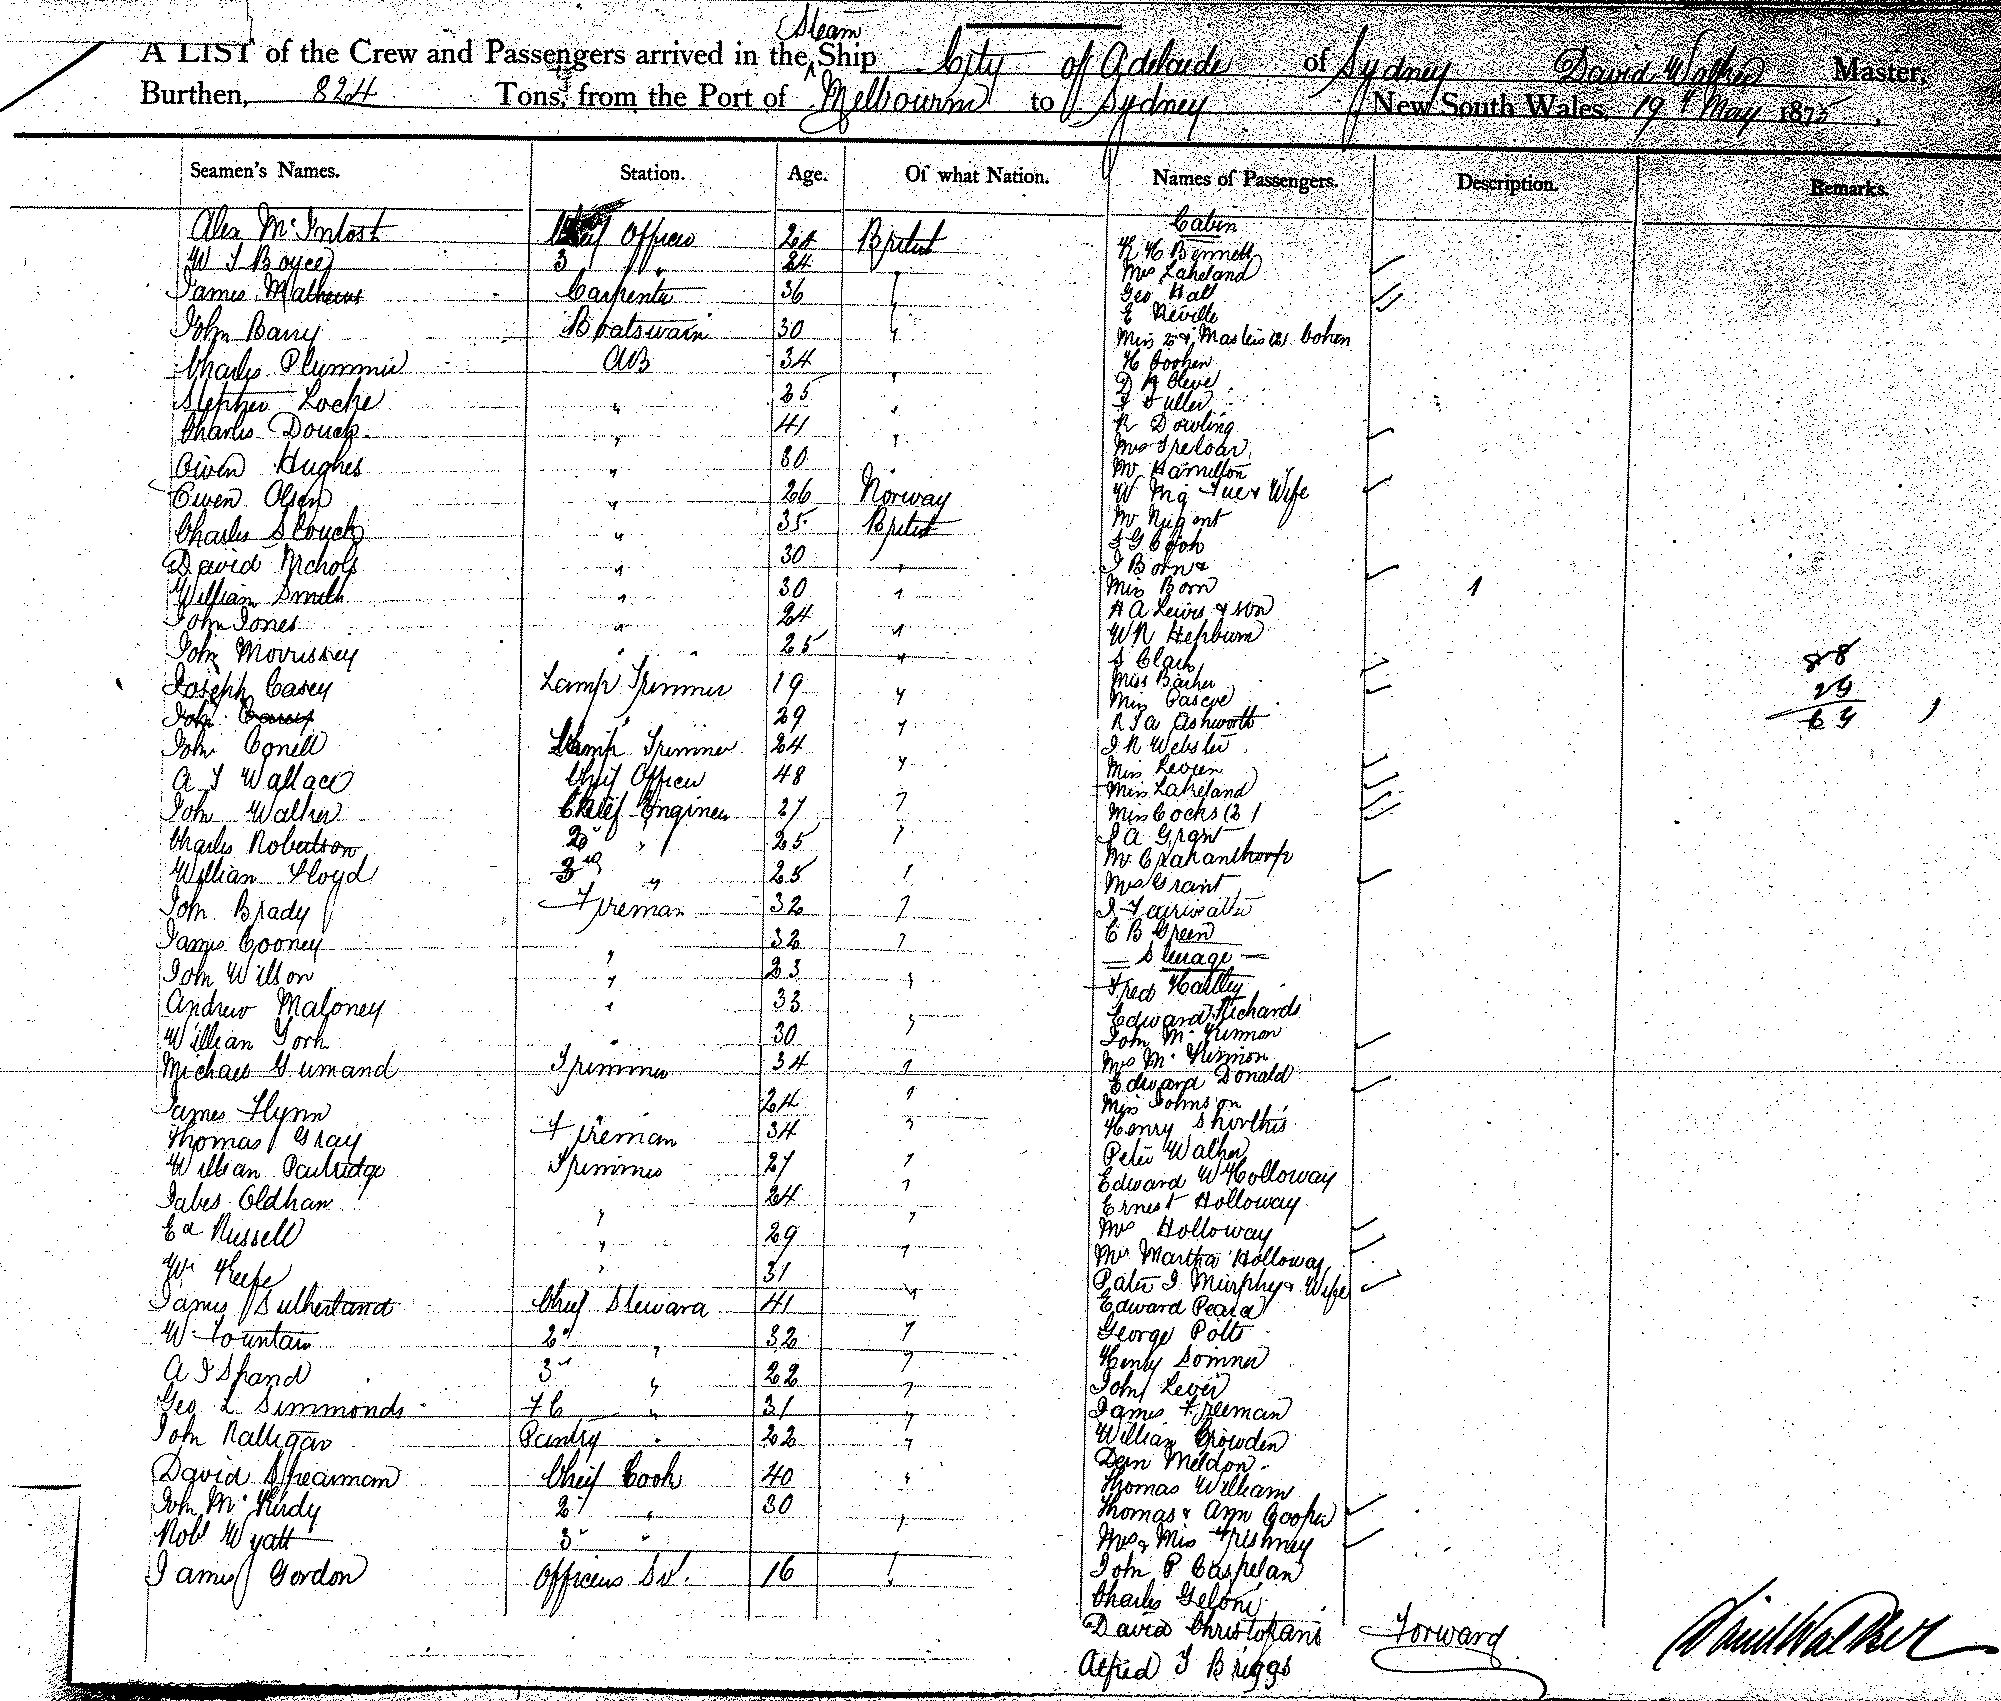 Steam
A LIST of the Crew and Passengers arrived in the Ship City of Adelaide of Sydney David Walker Master,
Burthen, 824 Tons, from the Port of Melbourne to Sydney New South Wales, 19th May 1875
Seamen's Names. Station. Age. Of what Nation. Names of Passengers. Description. Remarks.
Alex McIntosh Officer 24 British
W J Boyce 3 " 24 "
James Mathews Carpenter 36 "
John Barry Boatswain 30 "
Charles Plummer AB 34 "
Stephen Locke " 25 "
Charles Douch " 41 "
Owen Hughes " 30 "
Owen Olsen " 26 Norway
Charles S Couch " 35 British
David Nichols " 30 "
William Smith " 30 "
John Jones " 24 "
John Morrissey " 25 "
Joseph Casey Lamp Trimmer 19 "
John 29 "
John Conell Lamp Trimmer 24 "
A J Wallace Chief Officer 48 "
John Walker Chief Engineer 27 "
Charles Robertson 2d " 25 "
William Floyd 3rd " 25 "
John Brady Fireman 32 "
James Cooney " 32 "
John Wilson " 23 "
Andrew Maloney " 33 "
William York " 30
Michael Trimmer 34 "
James Flynn 24 "
Thomas Gray Fireman 34 "
William Partridge Trimmer 27 "
Jabes Oldham " 24 "
Ed Russell " 29 "
Wm Keefe " 31 "
James Sutherland Chief Steward 41 "
W Fountain 2d " 32 "
A J Shand 3d " 22 "
Geo L Simmonds F C " 31 "
John Ralligan Pantry " 22 "
David Spearman Chief Cook 40 "
John McKirdy 2 " 30 "
Robt Wyatt 3 "
James Gordon Officers St. 16 "
Cabin
R H Bynnell
Mrs Lakeland
Geo Hall
E Neville
Miss & Masters (2) Cohen
H Coohen
D A Cleve
J Fuller
R Dowling
Mrs Treloar
Mr Hamilton
W & Wife
Mr Nugent
J G Cook
J Born &
Miss Born 1
H A Lewis & son
W R Hepburn
J Clark
Miss Barker
Miss Pascoe
R J A Ashworth
J R Webster
Miss Leven
Miss Lakeland
Miss Cocks (2)
J A Grant
Mr Crahanthorp
Mrs Grant
J Fairweather
C B Green
88
24
64
Steerage
Fred Hartley
Edward Richards
John McKinnon
Mrs McKinnon
Edward Donald
Miss Johnson
Henry Shorthis
Peter Walker
Edward W Holloway
Ernest Holloway
Mrs Holloway
Mrs Martha Holloway
Pater J Murphy & Wife
Edward Peard
George Potts
Henry Somner
John Lever
James Freeman
William Crowden
Dean Meldon
Thomas William
Thomas & Ann Cooper
Mrs & Miss Freshney
John P Caspelan
Charles Geloni
David Christofani
Alfred J Briggs
Forward
David Walker